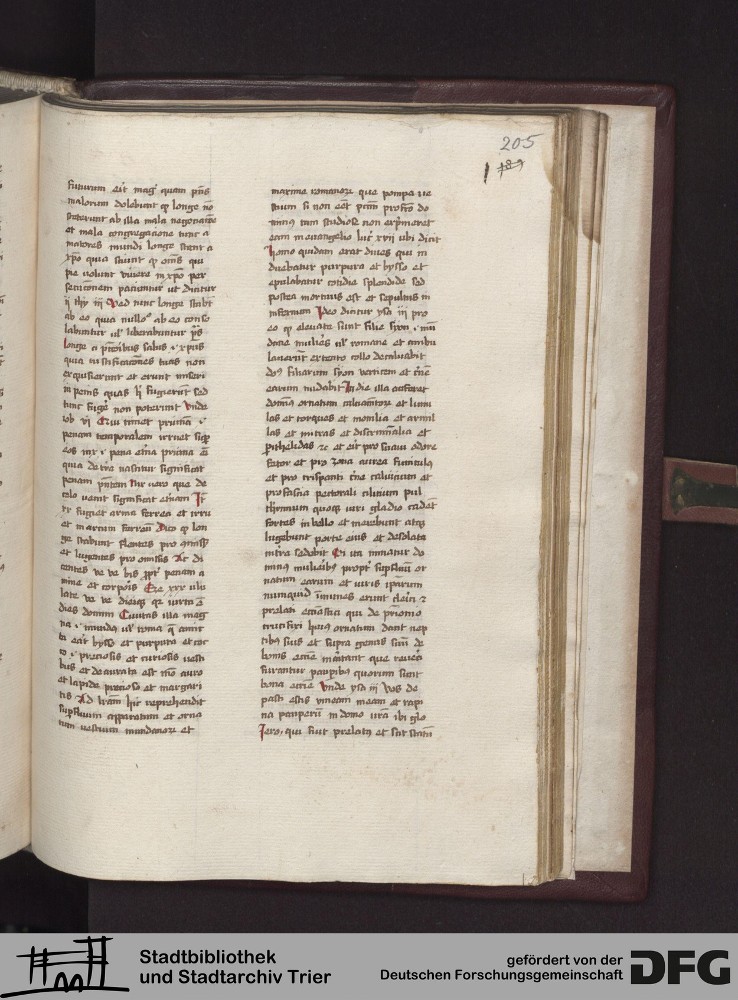 205
futurum erit mag quam pns
malorum dolebunt qr longe no
steterunt ab illa mala negociacione
et mala congregacione tunc a
maiores mundi longe stent a
xpo quia sciunt qr oms qui
pie volunt vivere in xpo per
secucionem paciuntur ut dicitur
ii thy iii Sed tunc longe stabt
ab eo quia nullo ab eo conso
labuntur ul liberabuntur ps
longe a pctoribus salus
quia iustificaciones tuas non
exquisierunt et erunt miseri
in penis quas hi fugierunt sed
tunc fugere non poterunt Unde
iob vi Qui timet pruinam
penam temporalem irruet sup
eos nix pena etna pruina em
quia de tra nascitur significat
penam pntem Nix vero que de
celo venit significat etnam It
xx fugiet arma ferrea et irru
et in arcum ferreum Dico qr lon
ge stabunt flentes pro
et lugentes pro omissis Ac di
centes ve ve bis ppt penam a
nime et corporis Eze xxx ulu
late ve ve diei qr iuxta e
dies domini Civitas illa mag
na mundus ul roma q amic
ta erat bysso et purpura et coc
co preciosis et curiosis vesti
bus et deaurata est auro
et lapide precioso et margari
tis Ad lram hic reprehendit
superfluum apparatum et orna
tum vestium mundanorum et
maxime romanorum que pompa ve
stium si non eet pctm profecto do
minus tam studiose non exprimeret
eam in evangelio luc xvii ubi dicit
homo quidam erat dives qui in
duebatur purpura et bysso et
epulabatur cotidie splendide sed
postea mortuus est et sepultus in
infernum Ideo dicitur ysa iii pro
eo qr elevate sunt filie syon
dane mulies ul romane et ambu
laverunt extento collo decalvabit
dns filiarum syon verticem et cne
earum nudabit In die illa auferet
dominus ornatum calciamentorum et lunu
las et torques et monilia et armil
las et mitras et discriminalia et
perichelidas et erit pro suavi odore
fetor et pro zona aurea funiculus
et pro crispanti cne calvicium et
pro fascia pectorali cilicium pul
cherrimi quoque viri gladio cadent
fortes in bello et merebunt atque
lugebunt porte eius et desolata
in tra sedebit Si ita minatur do
minus mulieribus propter superfluum or
natum earum et viris ipsarum
numquid inmunes erunt clerici et
prelati ecclesiastici qui de primonio
crucifixi huius ornatum dant nep
tibus suis et supra genus suum de
bonis ecclie que reveri
furantur pauperibus quorum sunt
bona ecclie Unde ysa iii Vos de
pasti estis vineam meam et rapi
na pauperum in domo vra ibi glo
Iero qui sunt prelati et
Stadtbibliothek
und Stadtarchiv Trier
gefördert von der
Deutschen Forschungsgemeinschaft
DFG